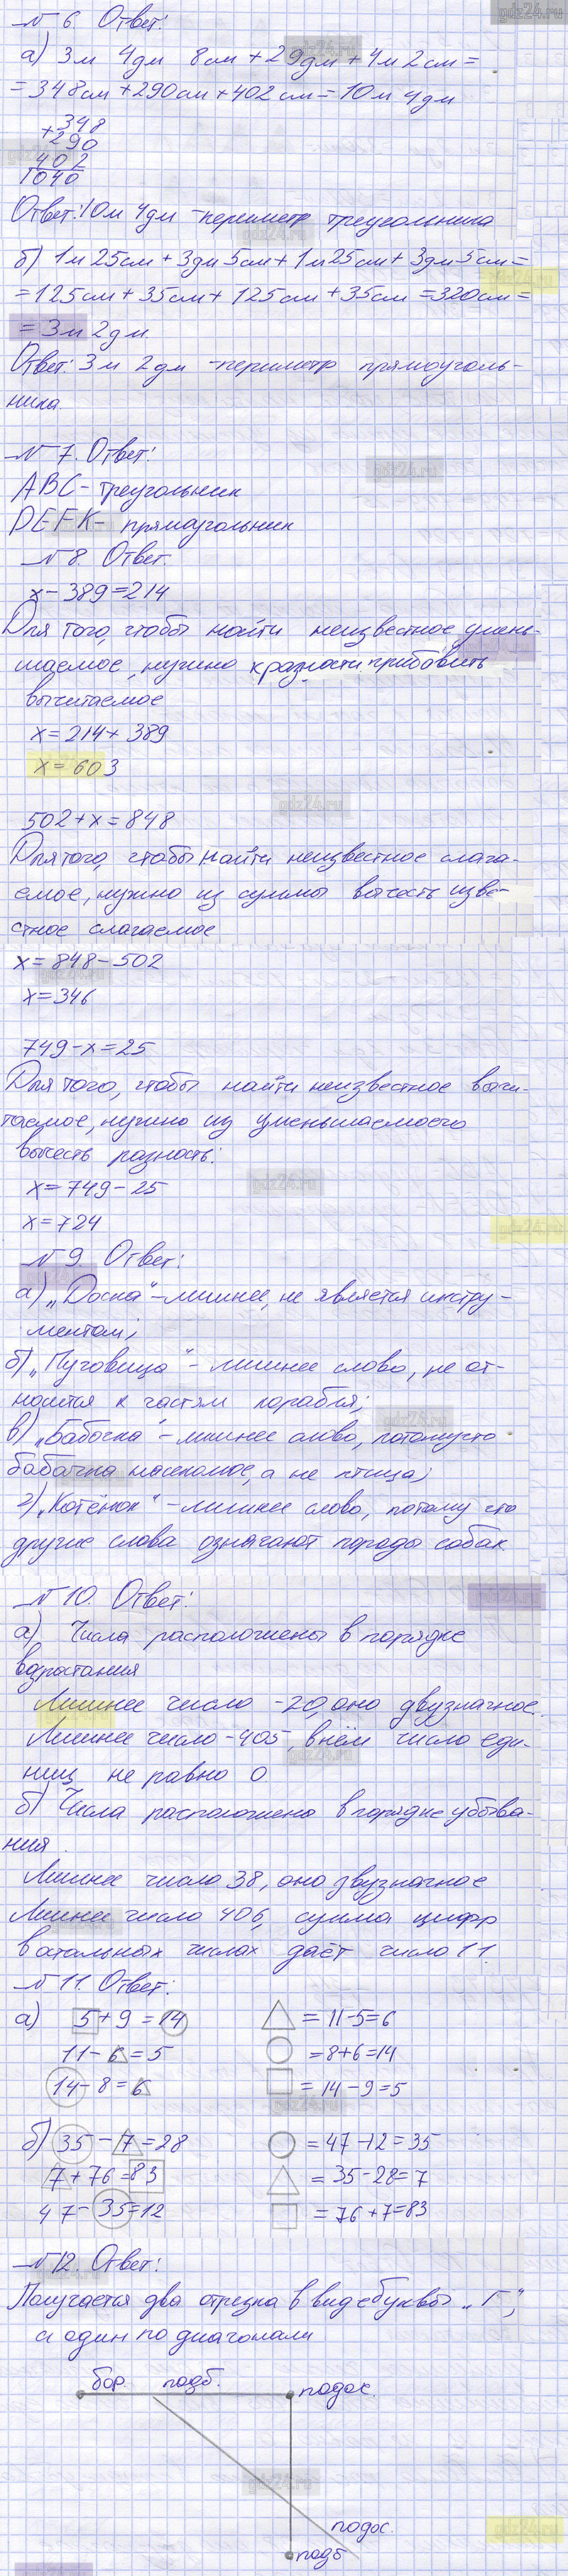 № 6. Ответ:
а) 3м 4дм 8см + 29дм + 4м 2см =
= 348см + 290см + 402см = 10м 4дм
+348
290
402
1040
Ответ: 10м 4дм - периметр треугольника
б) 1м 25см + 3дм 5см + 1м 25см + 3дм 5см =
= 125см + 35см + 125см + 35см = 320см =
= 3м 2дм.
Ответ: 3м 2дм - периметр прямоуголь-
ника.
№ 7. Ответ:
ABC - треугольник
DEFK - прямоугольник
№ 8. Ответ.
x - 389 = 214
Для того, чтобы найти неизвестное умень-
шаемое, нужно к разности прибавить
вычитаемое
x = 214 + 389
x = 603
502 + x = 848
Для того, чтобы найти неизвестное слага-
емое, нужно из суммы вычесть изве-
стное слагаемое
x = 848 - 502
x = 346
749 - x = 25
Для того, чтобы найти неизвестное вычи-
таемое, нужно из уменьшаемого
вычесть разность:
x = 749 - 25
x = 724
№ 9. Ответ:
а) „Доска" - лишнее, не является инстру-
ментом;
б) „Пуговица" - лишнее слово, не от-
носится к частям корабля;
в) „Бабочка" - лишнее слово, потому что
бабочка насекомое, а не птица;
г) „Котёнок" - лишнее слово, потому что
другие слова означают породы собак
№ 10. Ответ:
а) Числа расположены в порядке
возрастания
Лишнее число - 20, оно двузначное.
Лишнее число - 405, в нём число еди-
ниц не равно 0
б) Числа расположено в порядке убыва-
ния.
Лишнее число 38, оно двузначное
Лишнее число 406, сумма цифр
в остальных числах даёт число 11.
№ 11. Ответ:
а) 5 + 9 = 14 △ = 11 - 5 = 6
11 - 6 = 5 ○ = 8 + 6 = 14
14 - 8 = 6 □ = 14 - 9 = 5
б) 35 - 7 = 28 ○ = 47 - 12 = 35
7 + 76 = 83 △ = 35 - 28 = 7
47 - 35 = 12 □ = 76 + 7 = 83
№ 12. Ответ:
Получается два отрезка в виде буквы „Г",
а один по диагонали
бор. подб. подос.
подос.
подб
gdz24.ru